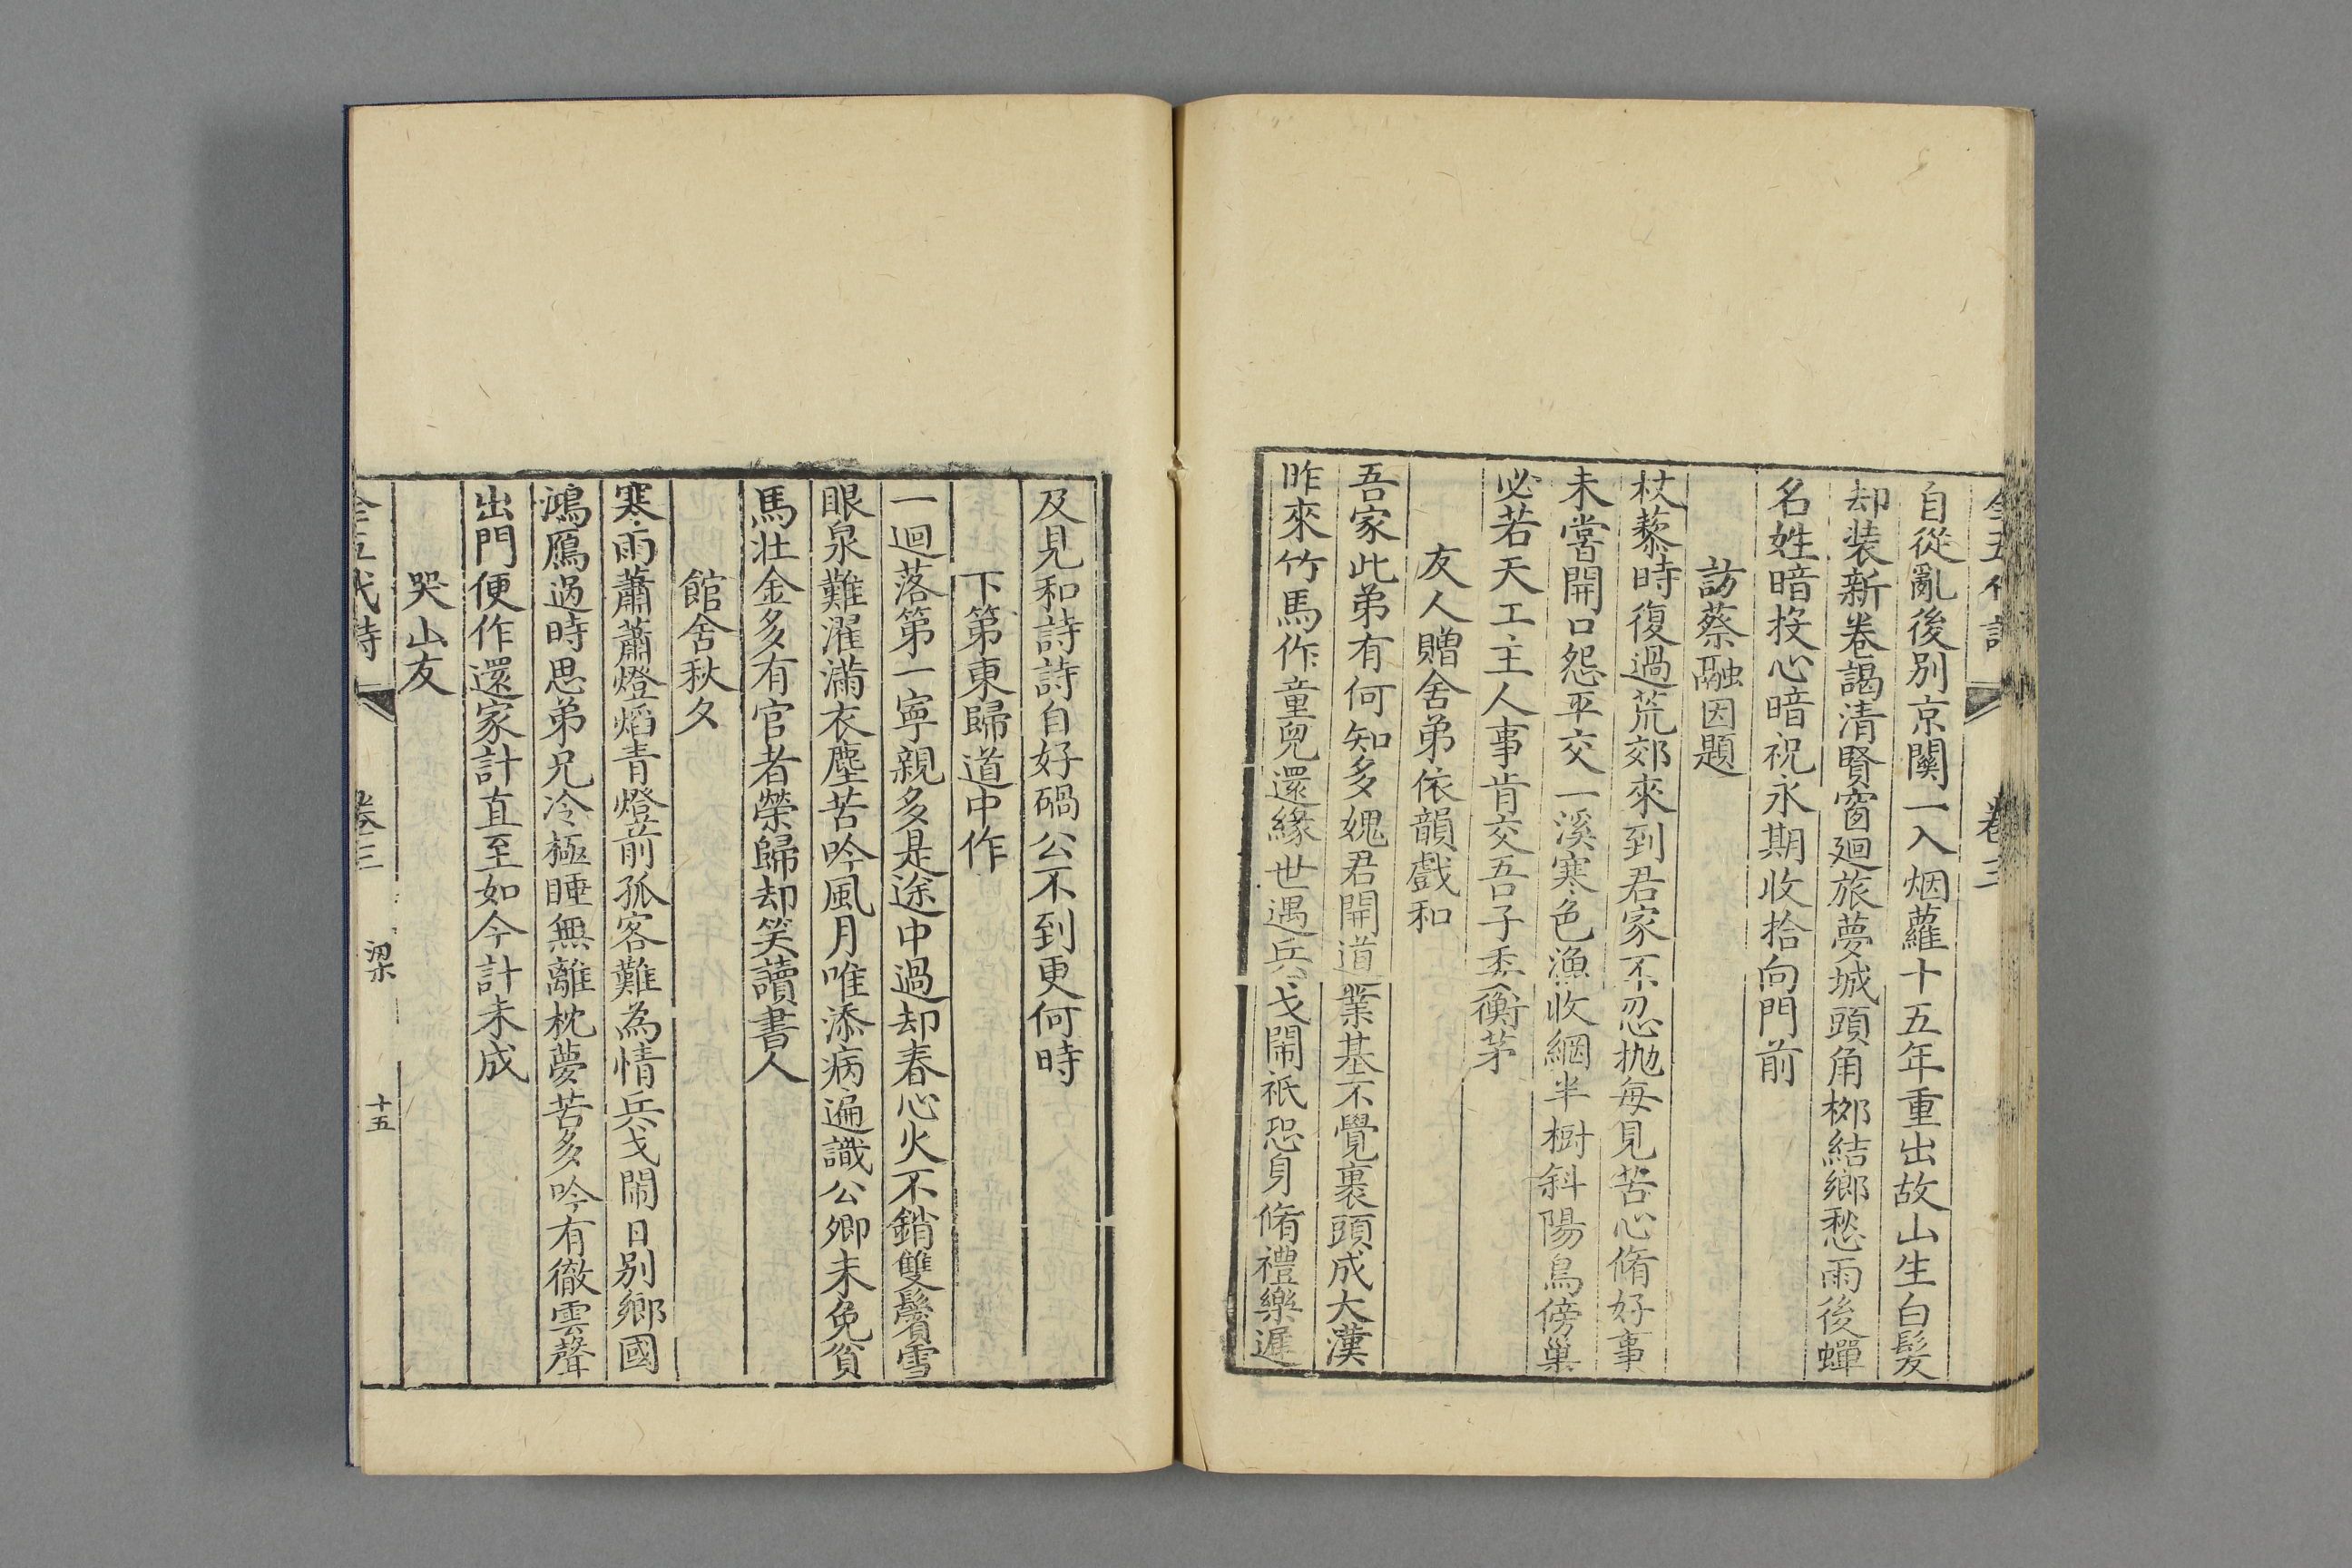 全五代詩 卷三
自從亂後別京關一入烟蘿十五年重出故山生白髮
却装新卷謁清賢窗廻旅夢城頭角栁結鄉愁雨後蟬
名姓暗投心暗祝永期收拾向門前
訪蔡融因題
杖藜時復過荒郊來到君家不忍抛每見苦心脩好事
未嘗開口怨平交一溪寒色漁收網半樹斜陽鳥傍巢
必若天工主人事肯交吾子委衡茅
友人贈舍弟依韻戲和
吾家此弟有何知多媿君開道業基不覺裹頭成大漢
昨來竹馬作童兒還緣世遇兵戈鬧祇恐身脩禮樂遲
及見和詩詩自好碢公不到更何時
下第東歸道中作
一迴落第一寧親多是途中過却春心火不銷雙鬢雪
眼泉難濯滿衣塵苦吟風月唯添病遍識公卿未免貧
馬壮金多有官者榮歸却笑讀書人
館舍秋夕
寒雨蕭蕭燈焰青燈前孤客難為情兵戈鬧日別鄉國
鴻鴈過時思弟兄冷極睡無離枕夢苦多吟有徹雲聲
出門便作還家計直至如今計未成
哭山友
全五代詩 卷三 梁 十五